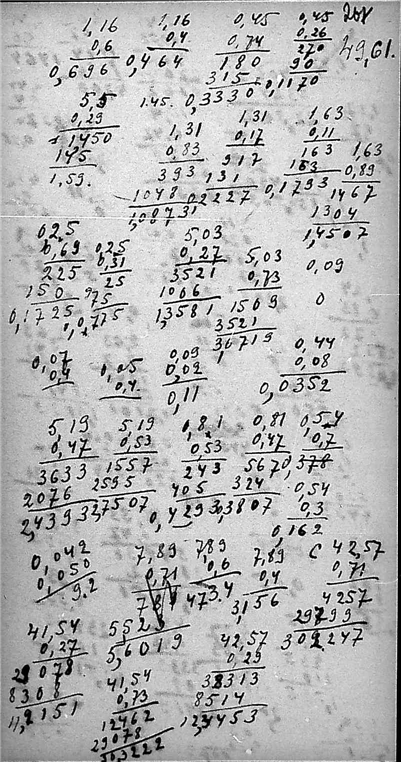 1,16 1,16 0,45 0,45
0,6 0,4 0,74 0,26
0,696 0,464 180 270
315 90
0,3330 0,1170
49,61.
5,5 1.45.
0,29
1450
145
1,59.
1,31 1,31 1,63
0,83 0,17 0,11
393 917 163
1048 131 163
1,08731 0,2227 0,1793
1,63
0,89
1467
1304
1,4507
0,25 0,25 5,03 5,03 0,09
0,69 0,31 0,27 0,73 0
225 25 3521 1509
150 75 1006 3521
0,1725 0,0775 1,3581 3,6719
0,07 0,05 0,09 0,44
0,4 0,4 0,02 0,08
0,11 0,0352
5,19 5,19 0,81 0,81 0,54
0,47 0,53 0,53 0,47 0,7
3633 1557 243 567 0,378
2076 2595 405 324 0,54
2,4393 2,7507 0,4293 0,3807 0,3
0,162
0,042 7,89 7,89 7,89 С 42,57
0,050 0,71 0,6 0,4 0,71
9.2 789 473.4 3,156 4257
5523 29799
5,6019 302247
41,54 41,54 42,57
0,27 0,73 0,29
29078 12462 38313
8308 29078 8514
11,2151 303222 12,3453